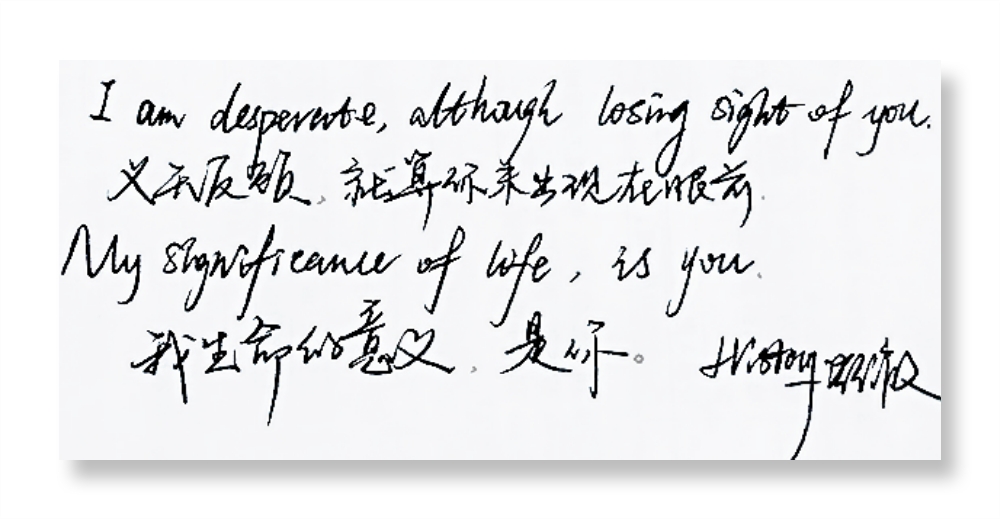 I am desperate, although losing sight of you.
义无反顾,就算你未出现在眼前.
My significance of life, is you.
我生命的意义,是你。
History